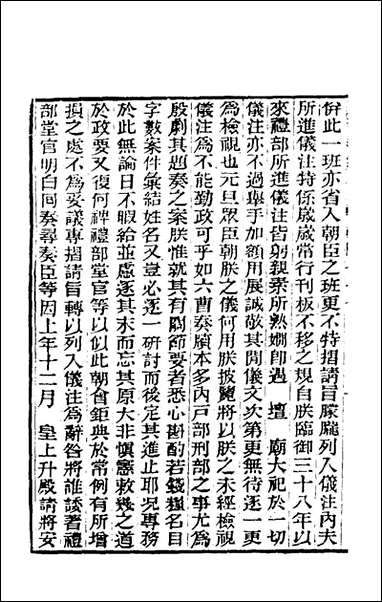 倂此一班亦省入朝臣之班更不特摺請旨朦朧列入儀注內夫
所進儀注特係歲歲常行刊板不移之規自朕臨御三十八年以
來禮部所進儀注皆躬親素所熟嫺卽遇 壇 廟大祀於一切
儀注亦不過舉手加額用展誠敬其閒儀文次第更無待逐一更
爲檢視也元旦眾臣朝朕之儀何用朕披覽將以朕之未經檢視
儀注爲不能勤政可乎如六曹奏牘本多內戸部刑部之事尤爲
殷劇其題奏之案朕惟就其有關節要者悉心斟酌若錢糧名目
字數案件彙結姓名又豈必逐一硏討而後定其進止耶况專務
於此無論日不暇給並慮逐其末而忘其原大非愼憲敕幾之道
於政要又復何裨禮部堂官等以似此朝會鉅典於常例有所增
損之處不爲妥議專摺請旨轉以列入儀注爲辭咎將誰諉著禮
部堂官明白囘奏尋奏臣等因上年十二月 皇上升殿請將安